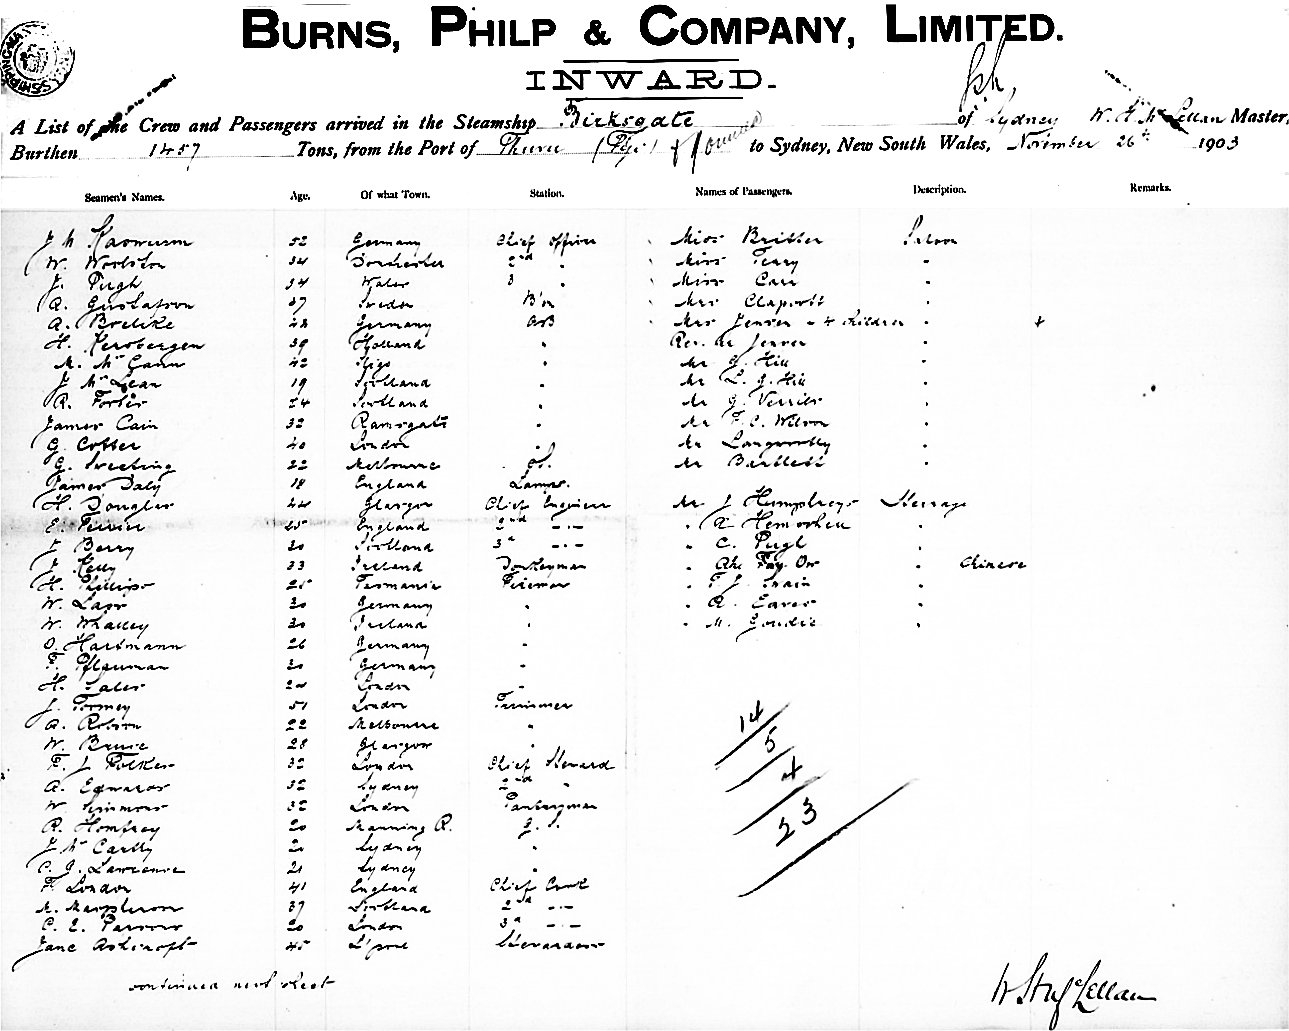 BURNS, PHILP & COMPANY, LIMITED.
INWARD.
A List of the Crew and Passengers arrived in the Steamship Birksgate of Sydney Master,
Burthen 1457 Tons, from the Port of (Fiji) & to Sydney, New South Wales, November 26th 1903
Seamen's Names. Age. Of what Town. Station. Names of Passengers. Description. Remarks.
52 Germany Chief Officer Miss Saloon
W. Woolston 34 Dorchester 2nd " Miss Terry "
J. Pugh 34 Wales 3 " Miss Carr "
A. Gustafson 37 Sweden B'sn Mrs "
A. Germany AB Mrs Jensen & 4 children "
H. Kersbergen 39 Holland " Rev. Jensen "
M. McGann 42 Sligo " Mr G. Hill "
J McLean 19 Scotland " Mr L. G. Hill "
R. Foster 24 Scotland " Mr G. "
James Cain 32 Ramsgate " Mr F. C. Wilson "
G. Cotter 40 London " Mr "
G. Sweeting 22 Melbourne O.S. Mr Bartlett "
James Daly 18 England Lamps.
H. Douglas 44 Glasgow Chief Engineer Mr J Humphreys Steerage
E. 25 England 2nd -"- "
J Berry 30 Scotland 3rd -"- " C. Pugh "
J Kelly 33 Ireland Donkeyman " " Chinese
H. Phillips 25 Tasmania Fireman " T J "
W. Lass 30 Germany " " R. Eaves "
W. Whalley 30 Ireland " " M. Goudie "
O. Hartmann 26 Germany "
F. Pflauman 30 Germany "
H. London "
J. Tormey 51 London Trimmer
A. Robson 22 Melbourne "
W. Bruce 28 Glasgow "
F. J Folkes 32 London Chief Steward
A. Edwards 32 Sydney 2nd "
W Simmons 32 London Pantryman
R. Homfrey 20 Manning R. G. S.
J McCarthy 21 Sydney "
C. G. Lawrence 21 Sydney "
F. London 41 England Chief Cook
M. 37 Scotland 2nd -"-
C. E. Parsons 20 London 3rd -"-
Jane Ashcroft 45 L'pool Stewardess
14
5
4
23
continued next sheet